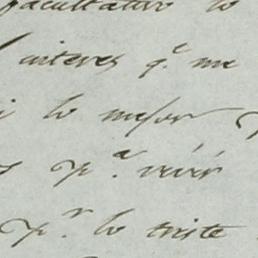 facultativo lo
interes q.e me
lo mejor
y p.a vivir
y p.r lo triste